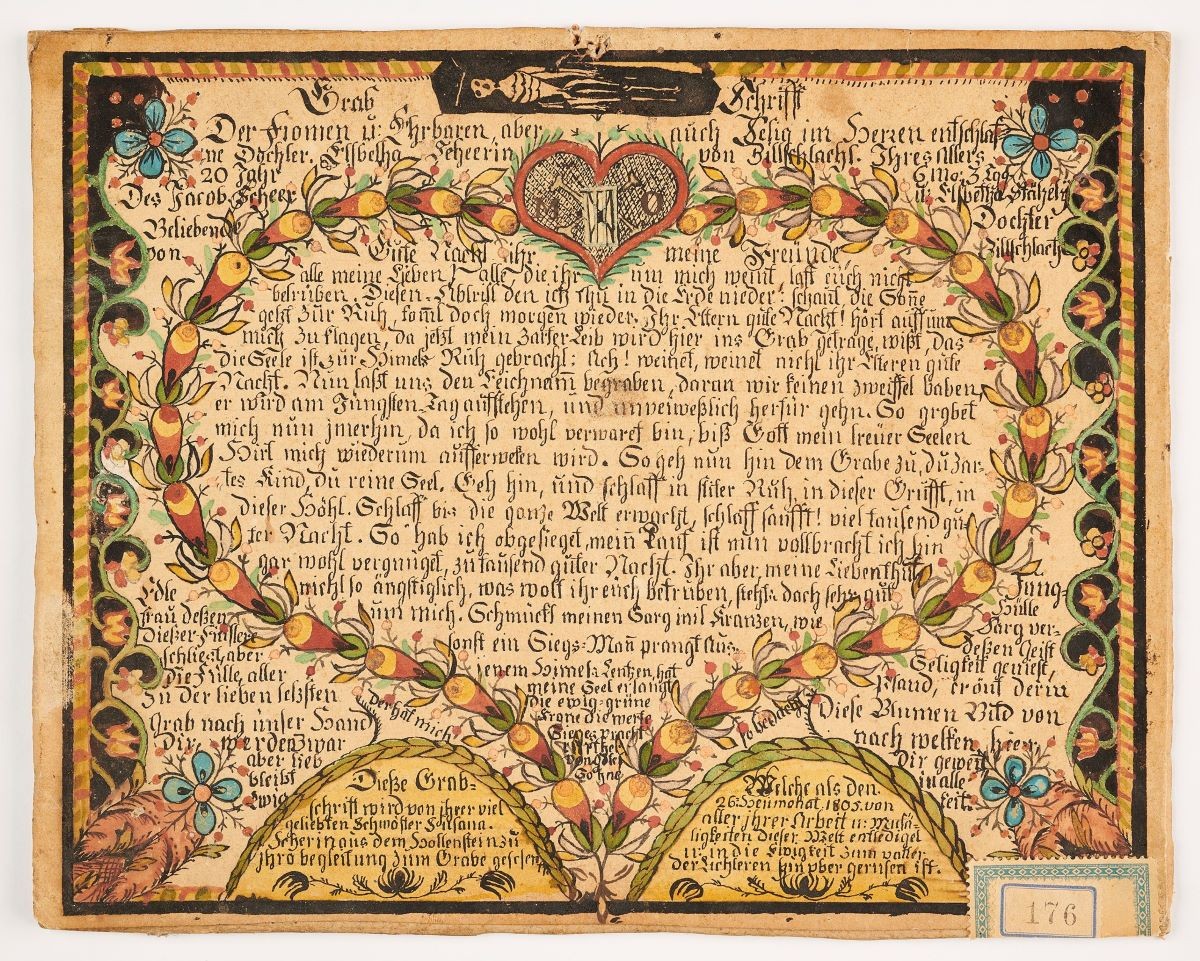 Grab Schrifft
Der Fromen u: Ehrbaren, aber auch Selig im Herren entschlaf-
ne Dochter, Elsbetha Scheerin von Zillschlacht. Ihres Alters
20 Jahr 6 Mo: 3 Tag
Des Jacob Scheer u:
Beliebende Dochter
von Zillschlacht
Gute Nacht ihr meine Freunde
alle meine Lieben, alle die ihr um mich weint, last euch nicht
betrüben, Diesen Abtrit den ich thu in die Erde nieder: schaut die Soñe
geht zür Rüh, komt doch morgen wieder. Ihr Eltern gute Nacht! hört auff um
mich zu klagen, da jetzt mein Zarter Leib wird hier ins Grab getrage, wißt, das
die Seele ist zür Himels Rüh gebracht: Ach! weinet, weinet nicht ihr Elteren gute
Nacht. Nun laßt uns den Leichnam̃ begraben, daran wir keinen zweiffel haben,
er wird am Jüngsten Tag aufstehen, und unverweßlich herfür gehn. So grabet
mich nun jmerhin, da ich so wohl verwaret bin, biß Gott mein treuer Seelen
Hirt mich wiederum aufferweken wird. So geh nun hin dem Grabe zu, du zar-
tes Kind, du reine Seel. Geh hin, und schlaff in stiler Ruh, in dieser Grufft, in
dieser Höhl. Schlaff bis die gonze Welt erwacht, schlaff sanfft! viel tausend gu-
ter Nacht. So hab ich obgesieget, mein Lauf ist nun vollbracht ich bin
gar wohl vergnüget, zu tausend guter Nacht. Ihr aber, meine Lieben thut
nicht so ängstiglich, was wolt ihr euch betrüben, stehts doch sehr gut
um mich. Schmückt meinen Sarg mit Kränzen, wie
sonst ein Siegs-Mañ prangt Aus
jenem Himels Lentzen, hat
meine Seel erlangt
die ewig-grüne
Krone die werte
Sieges pracht
von
Sohne
der hat mich so bedacht
Edle Jung-
frau deßen Hülle
Dießer Sarg ver-
schliest, aber deßen Geist
die Fülle, aller Seligkeit geniest,
Zu der lieben letzsten Pfand, crönt derin
Grab nach unser Hand Diese Blumen Bild von
Dir, werden zwar nach welken hier,
aber lieb Dir geweit
bleibt in alle
Ewig- keit.
Dieße Grab-
schrift wird von ihrer viel
geliebten Schwöster Susana
Scherin aus dem Hollenstein zu
jhrö begleitung zum Grabe gesesen
Welche als den
26: Heumohat, 1805. von
aller jhrer Arbeit u: Müesä-
ligkeiten dieser Welt entlediget
u: in die Ewigkeit zum
der Lichteren hin über geruffen ist.
176